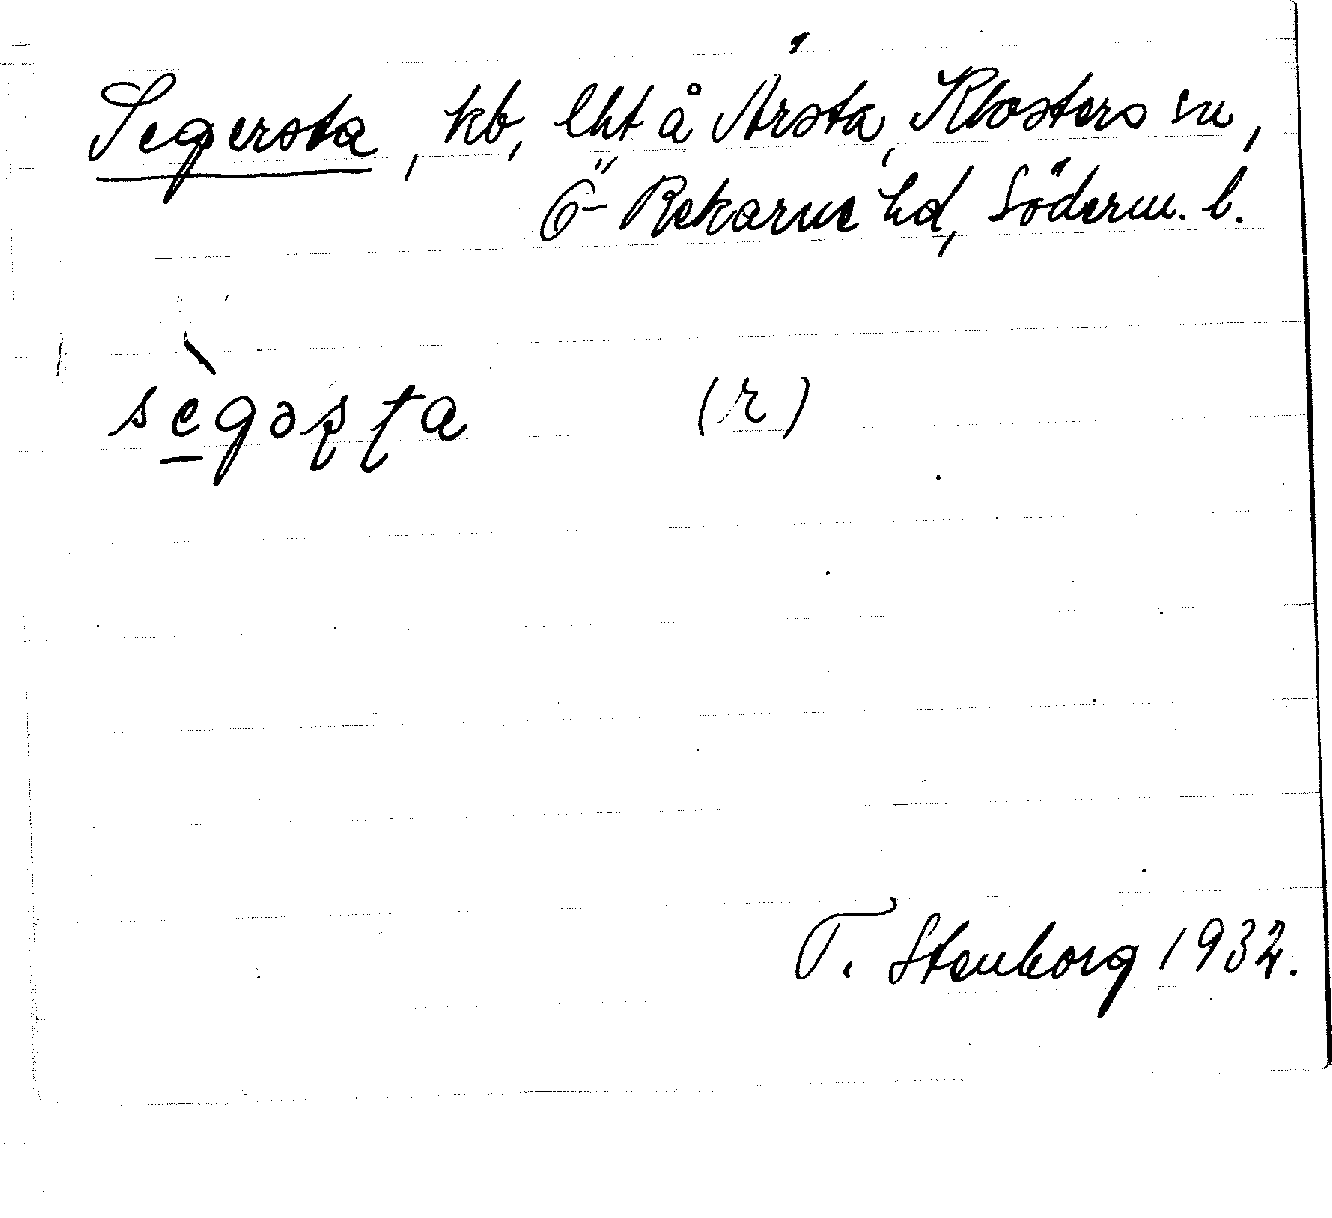 Segersta, kb, lht å Årsta, Klosters sn,
Ö-Rekarne hd, Söderm. l.
sè̱gəʂʈa (r)
T. Stenborg 1932.